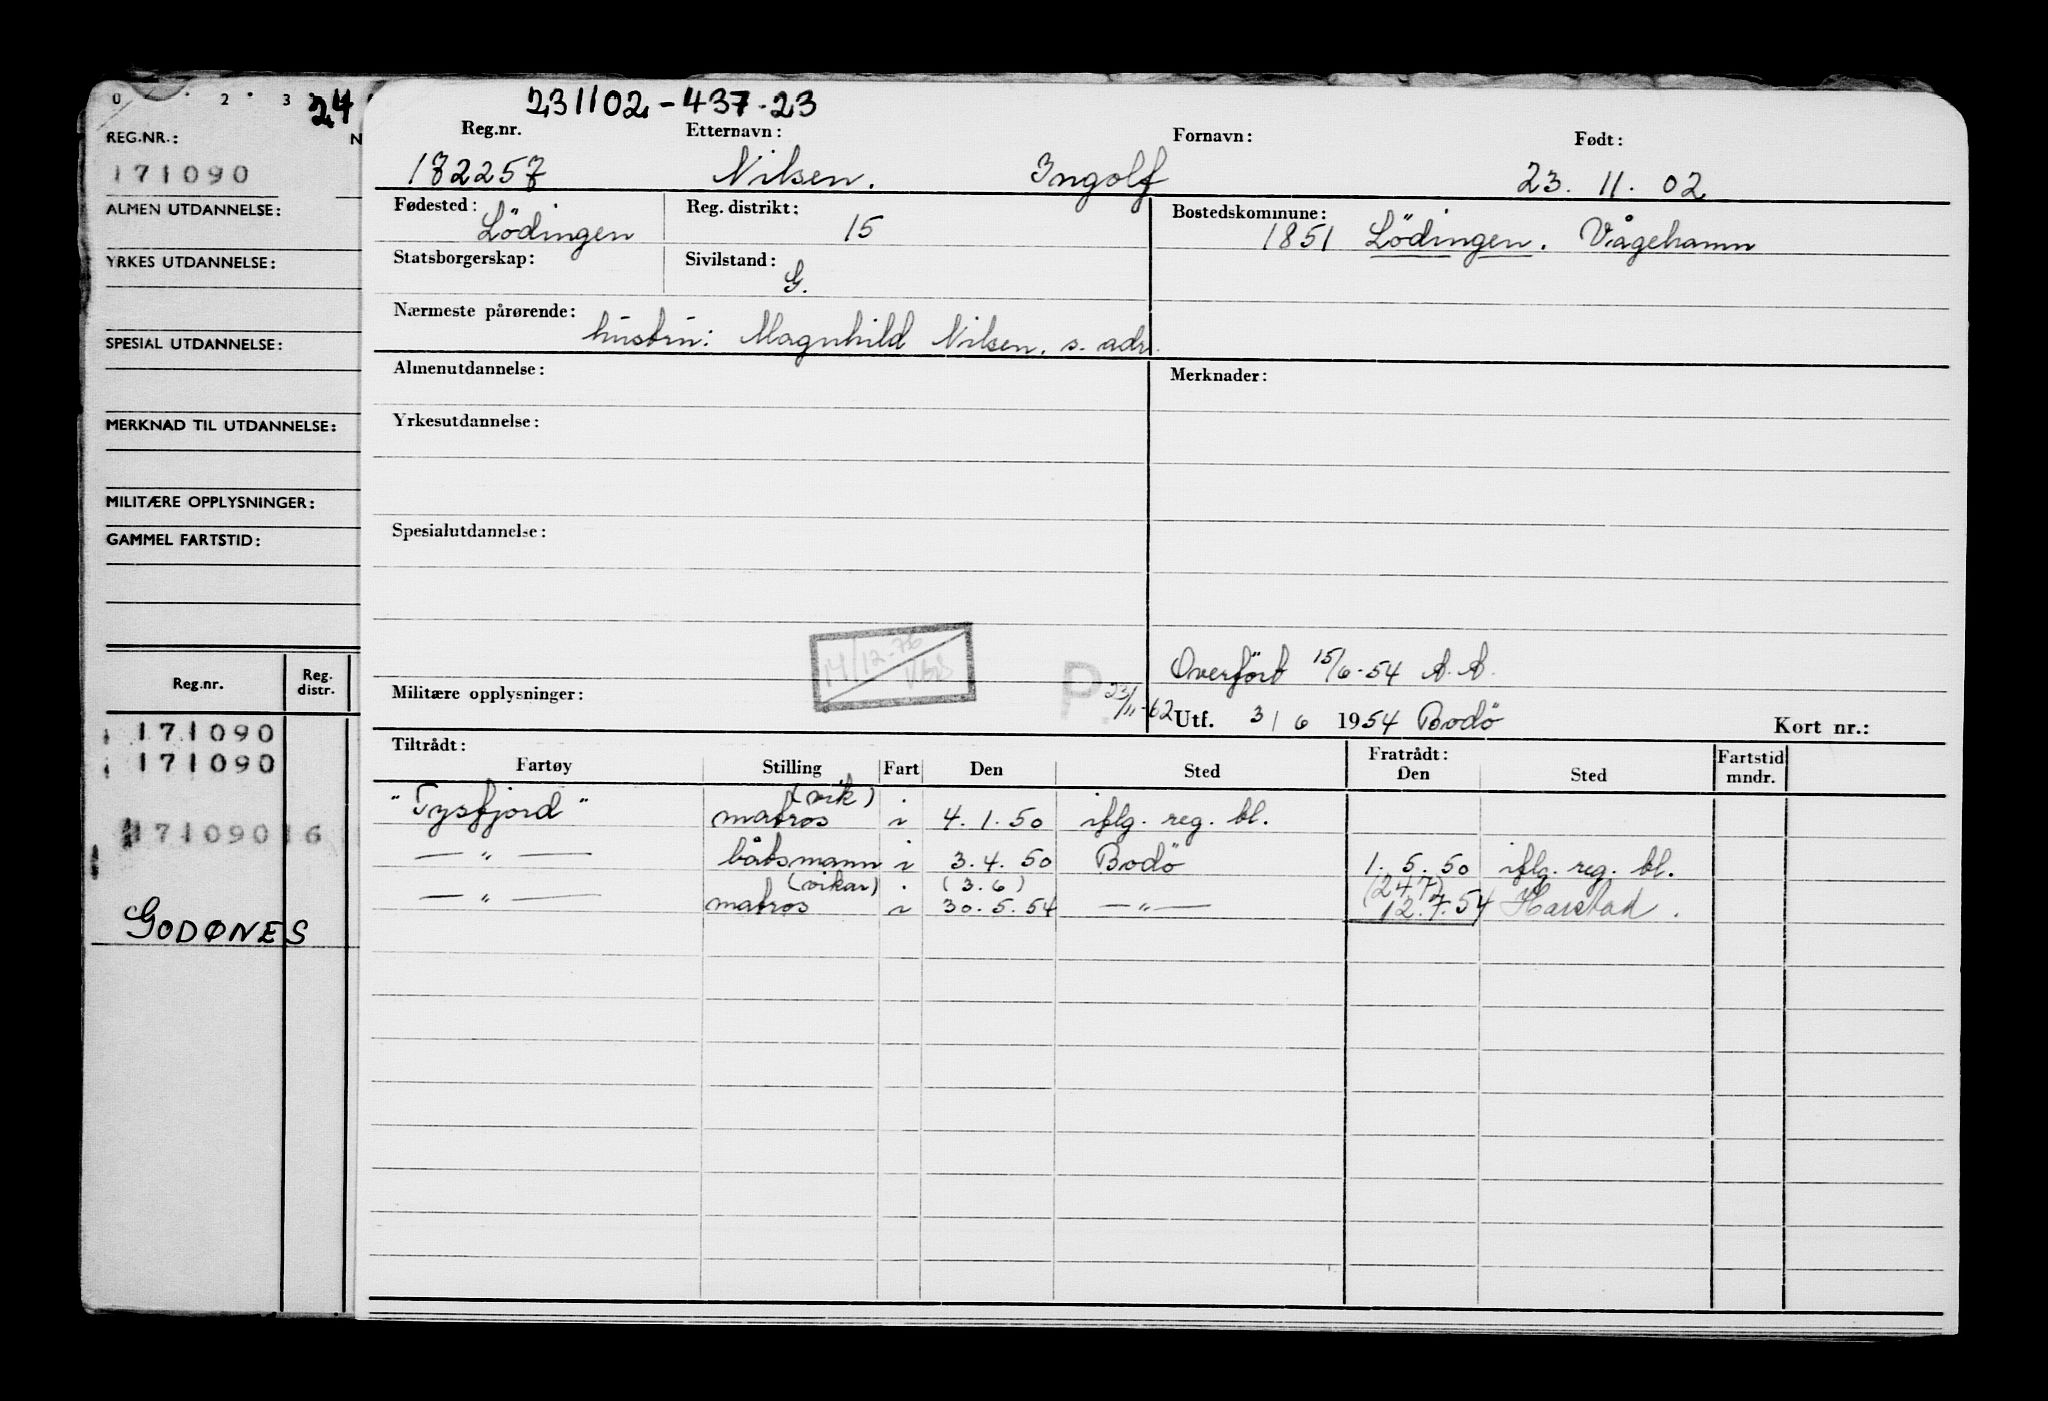 0 2 3 24
REG.NR.: N
171090
ALMEN UTDANNELSE:
YRKES UTDANNELSE:
SPESIAL UTDANNELSE:
MERKNAD TIL UTDANNELSE:
MILITÆRE OPPLYSNINGER:
GAMMEL FARTSTID:
Reg.nr. Reg. distr.
171090
171090
171090 16
GODØNES
231102-437-23
Reg.nr. Etternavn: Fornavn: Født:
182257 Nilsen. Ingolf 23. 11. 02
Fødested: Lödingen Reg. distrikt: 15 Bostedskommune: 1851 Lödingen. Vågehamn
Statsborgerskap: Sivilstand: G.
Nærmeste pårørende: hustru: Magnhild Nilsen. s. adr.
Almenutdannelse: Merknader:
Yrkesutdannelse:
Spesialutdannelse:
14/12-76
Overfört 15/6-54 A.A.
Militære opplysninger: P. 23/11-62 Utf. 3/6 1954 Bodö Kort nr.:
Tiltrådt: Fratrådt: Fartstid mndr.
Fartøy Stilling Fart Den Sted Den Sted
(vik)
"Tysfjord" matros i 4.1.50 iflg. reg. bl.
— " — båtsmann i 3.4.50 Bodö 1.5.50 iflg. reg. bl.
(vikar) (3.6) (24.7)
— " — matros i 30.5.54 — " — 12.7.54 Harstad.